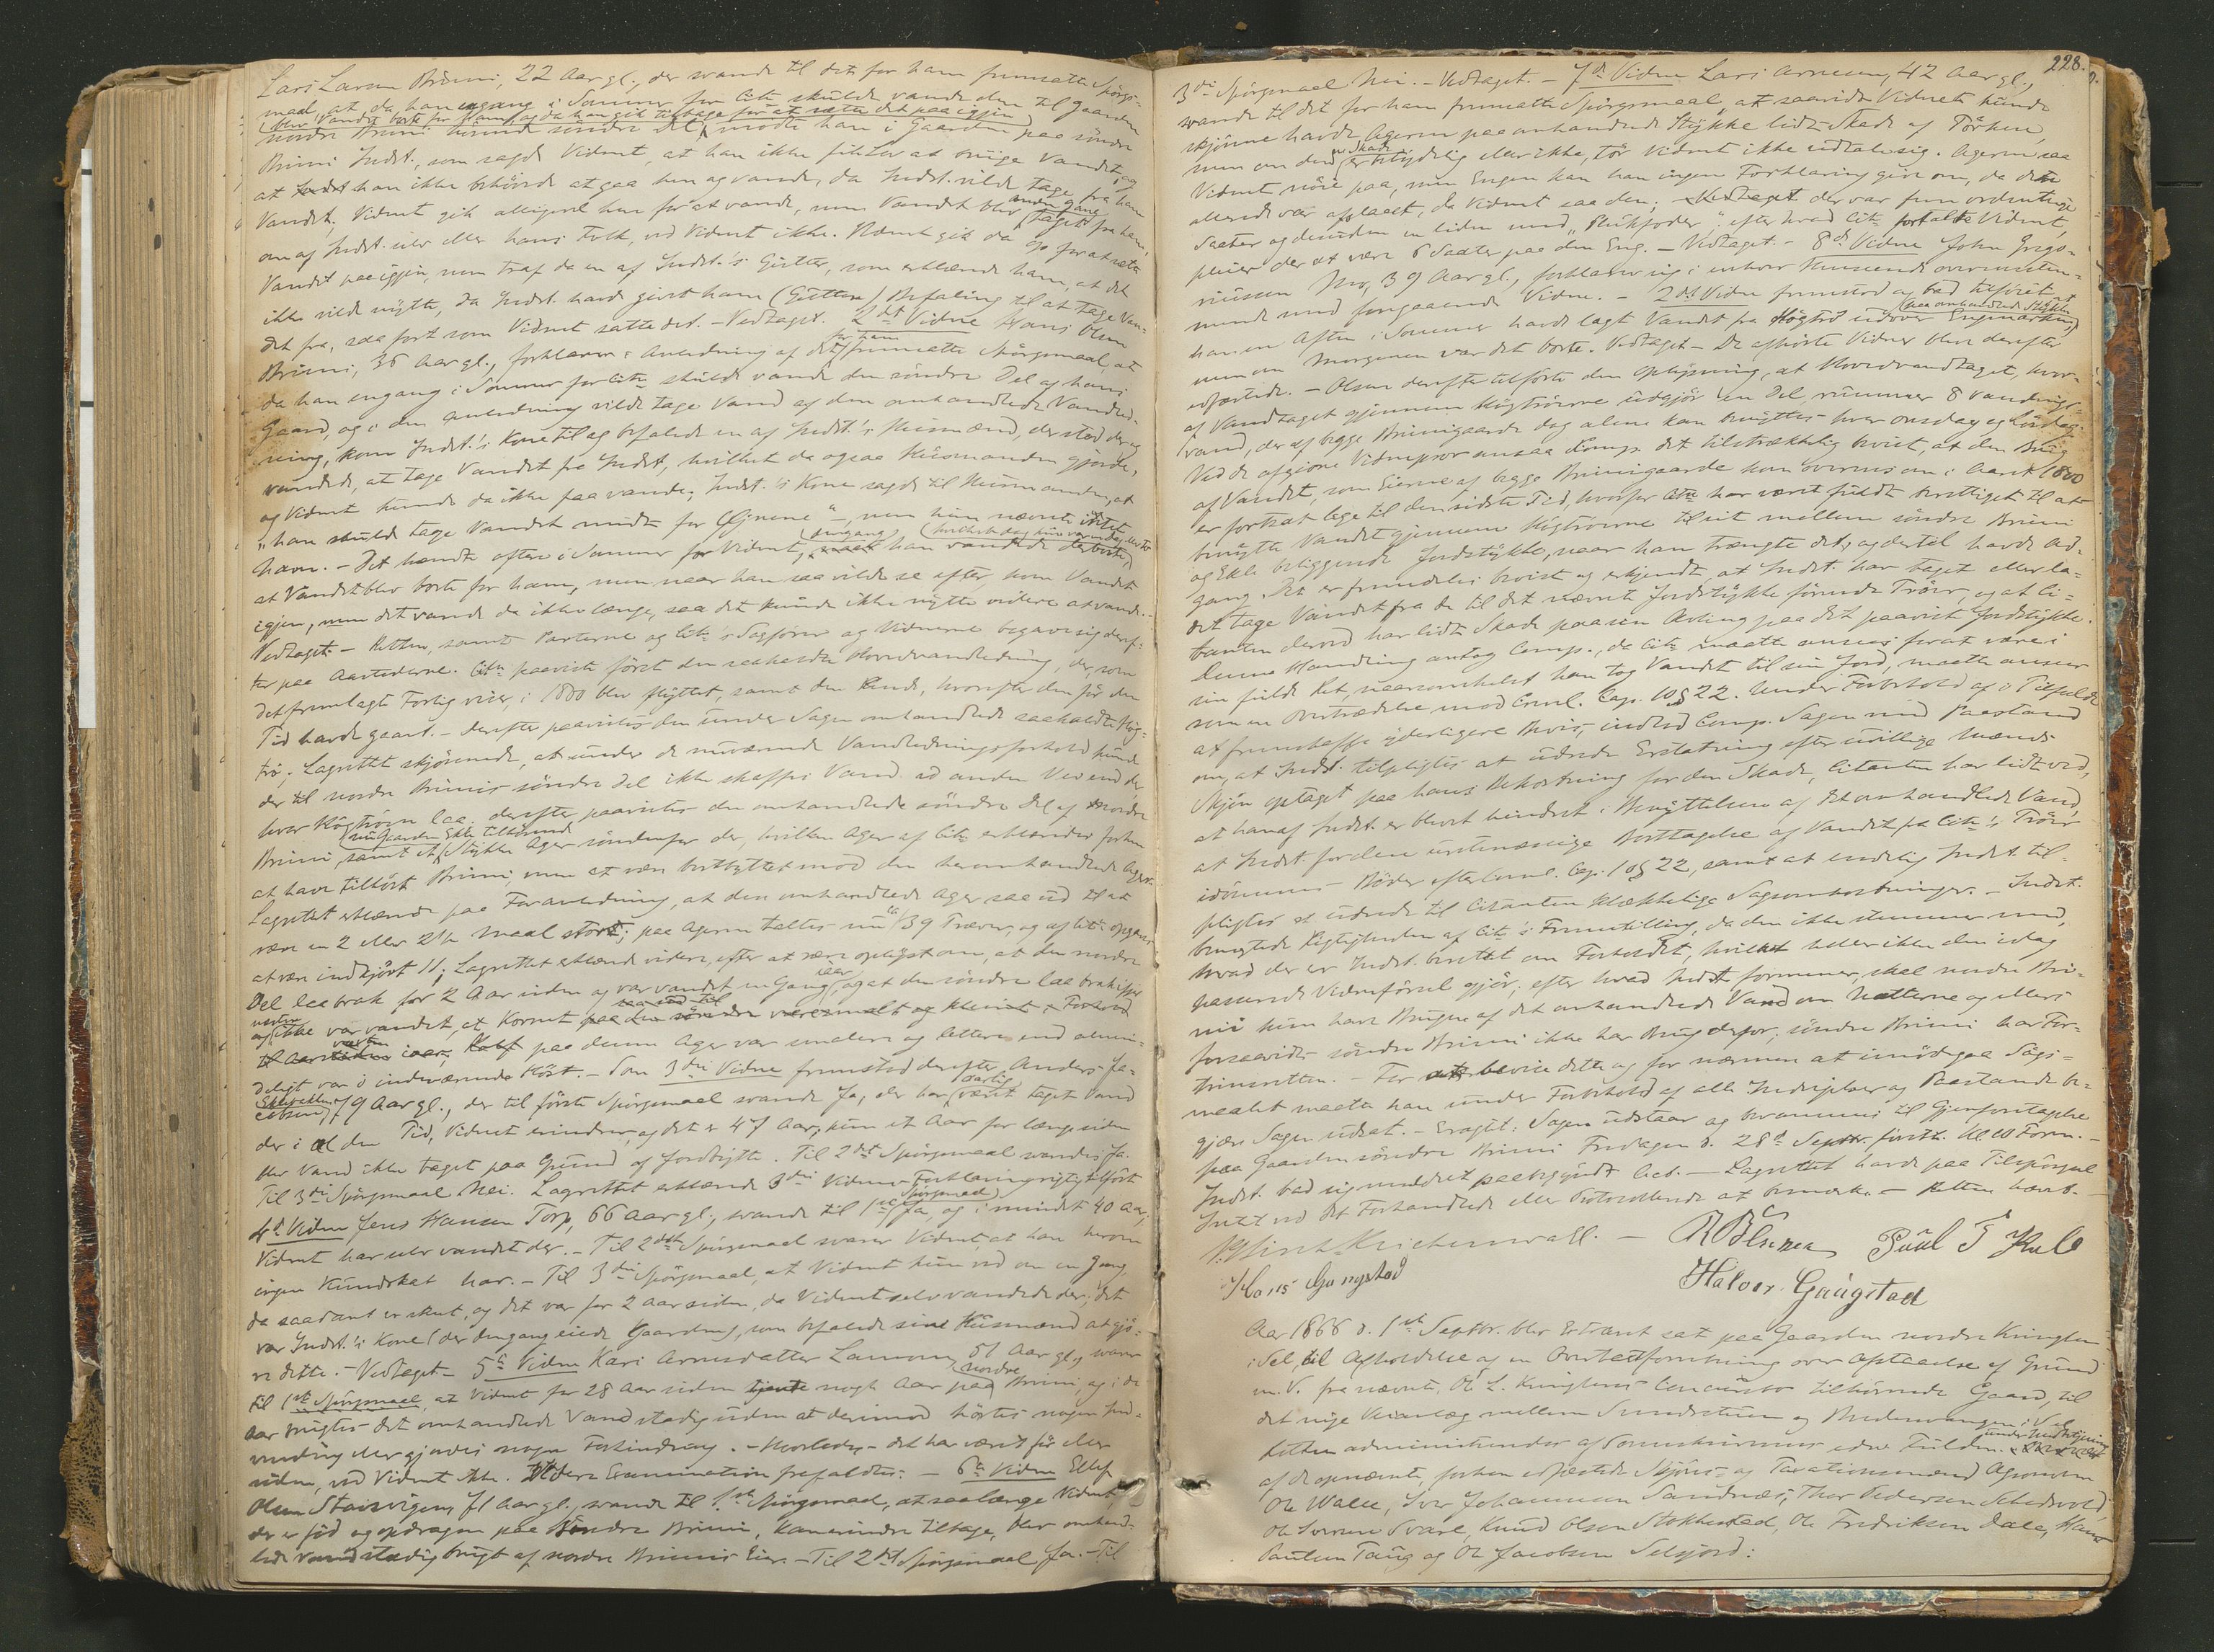 Lars Larsen Brimi, 22 Aar gl., der svarede til det for ham fremsatte Spörgs-
maal, at da han engang i Sommer for Citn skulde vande den til Gaarden
(blev Vandet borte for ham, og da han gik tilbage for at sætte det paa igjen
nordre Brimi hörende söndre Del, mödte han i Gaarden paa söndre
Brimi Indst., som sagde Vidnet, at han ikke fik Lov at bruge Vandet, og
at han ikke behövede at gaa hen og vande, da Indst. vilde tage fra ham
Vandet; Vidnet gik alligevel hen for at vande, men Vandet blev anden Gang taget fra ham,
om af Indst. selv eller hans Folk, ved Vidnet ikke. Vidnet gik da op for at sætte
Vandet paa igjen, men traf da en af Indst.'s Gutter, som erklærede ham, at det
ikke vilde nytte, da Indst. havde givet ham (Gutten) Befaling til at tage Van-
det fra, saa fort som Vidnet satte det. - Vedtaget. 2det Vidne Hans Olsen
Brimi, 36 Aar gl., forklarer i Anledning af det for ham fremsatte Spörgsmaal, at
da han engang i Sommer for Citn skulde vande den söndre Del af hans
Gaard, og i den Anledning vilde tage Vand af den omhandlede Vandled-
ning, kom Indst.'s Kone til og befalede en af Indst.'s Husmænd, der stod der og
vandede, at tage Vandet fra Indst, hvilket da ogsaa Husmanden gjorde,
og Vidnet kunde da ikke faa vande; Indst.'s Kone sagde til Husmanden, at
"han skulde tage Vandet midt for Öjnene" -, men hun nævnte intet
Navn. - Det hændte oftere i Sommer for Vidnet, engang han vandede
at Vandet blev borte for ham, men naar han saa vilde se efter, kom Vandet
igjen, men det varede da ikke længe, saa det kunde ikke nytte videre at vande. -
Vedtaget. - Retten, samt Parterne og Citn's Sagförer og Vidnerne begave sig deref-
ter paa Aastederne. Citn paaviste först den saakaldte Hovedvandledning, der, som
det fremlagte Forlig viser, i 1800 blev flyttet, samt den Rende, hvorefter den för den
Tid havde gaaet. - Derefter paavistes den under Sagen omhandlede saakaldte Hög-
trö; Lagrettet skjönnede, at under de nuværende Vandledningsforhold kunde
der til nordre Brimis söndre Del ikke skaffes Vand ad anden Vei end der,
hvor Högtröen laa. Derefter paavistes den omhandlede söndre Del af nordre
Brimi, samt et (nu Gaarden Ekle tilhörende) Stykke Ager söndenfor der, hvilken Ager af Citn erklæredes forhen
at have tilhört Brimi, men at være bortbyttet mod den heromhandlede Ager.
Lagrettet erklærede paa Foranledning, at den omhandlede Ager saa ud til at
være en 2 eller 2½ Maal stort; paa Ageren taltes nu ca 39 Træver, og af Citn opgaves
at være indkjört 11; Lagrettet erklærede videre, efter at være oplyst om, at den nordre
Del laa brak for 2 Aar siden og var vandet en Gang iaar, og at den söndre laa brak ifjor
og næsten ikke var vandet, at Kornet
paa denne Ager var smalere og lettere end almin-
deligt var i indeværende Höst. - Som 3die Vidne fremstod derefter Anders Ja-
cobsen Eklesekken, 79 Aar gl., der til förste Spörgsmaal svarede Ja, der har været aarlig taget Vand
der i al den Tid, Vidnet erindrer, og det er 47 Aar; kun et Aar for længe siden
blev Vand ikke taget paa Grund af Jordbytte. Til 2det Spörgsmaal svaredes Ja.
Til 3die Spörgsmaal Nei. Lagrettet erklærede 3die Vidnes Forklaring rigtig tilfört.
4de Vidne Jens Hansen Torp, 66 Aar gl., svarede til 1ste Spörgsmaal Ja, og i mindst 40 Aar;
Vidnet har selv vandet der. - Til 2det Spörgsmaal svarer Vidnet, at han herom
ingen Kundskab har. - Til 3die Spörgsmaal, at Vidnet kun ved om en Gang,
da saadant er skeet, og det var for 2 Aar siden, da Vidnet selv vandede der; det
var Indst.'s Kone (der dengang eiede Gaarden), som befalede sine Husmænd at gjö-
re dette. - Vedtaget. - 5te Vidne Kari Arnesdatter Lamoen, 51 Aar gl., svarer
til 1ste Spörgsmaal, at Vidnet for 28 Aar siden tjente nogle Aar paa nordre Brimi, og i de
Aar brugtes det omhandlede Vand stadig uden at derimod hörtes nogen Ind-
vending eller gjordes nogen Forhindring. - Hvorledes det har været för eller
siden, ved Vidnet ikke. Videre Examination frafaldtes. - 6te Vidne Ellef
Olsen Storvigen, 71 Aar gl., svarede til 1ste Spörgsmaal, at saalænge Vidnet,
der er föd og opdragen paa Söndre Brimi, kan erindre tilbage, blev omhand-
lede Vand stadig brugt af nordre Brimis Eier. - Til 2det Spörgsmaal Ja. - Til
228.
3die Spörgsmaal Nei. - Vedtaget. - 7de Vidne Lars Arnesen, 42 Aar gl.,
svarede til det for ham fremsatte Spörgsmaal, at saavidt Vidnet kunde
skjönne havde Ageren paa omhandlede Stykke lidt Skade af Törken,
men om den Skade er betydelig eller ikke, tör Vidnet ikke udtale sig. Ageren saa
Vidnet nöie paa, men Engen kan han ingen Forklaring give om, da den
allerede var afslaaet, da Vidnet saa den; der var fem ordentlige
Saater og desuden en liden med "Rukfoder"; efter hvad Citn fortalte Vidnet,
pleier der at være 6 Saater paa den Eng. - Vedtaget. - 8de Vidne John Grego-
riussen Mo, 39 Aar gl., forklarer sig i enhver Henseende overensstem-
mende med foregaaende Vidne. - 2det Vidne fremstod og bad tilföiet, at
han en Aften i Sommer havde lagt Vandet fra Högtrö udover Engmarken (paa omhandlede Stykke),
men om Morgenen var det borte. Vedtaget. - De afhörte Vidner blev derefter
edfæstede. - Olsen derefter tilförte den Oplysning, at Hovedvandtaget, hvor-
af Vandtaget gjennem Högtröerne udgjör en Del, rummer 8 Vandnings-
vand, der af begge Brimigaarde dog alene kan benyttes hver Onsdag og Löverdag.
Ved de afgivne Vidneprov ansaa Comp. det tilstrækkelig bevist, at den Brug
af Vandet, som Eierne af begge Brimigaarde kom overens om i Aaret 1800
er fortsat lige til den sidste Tid, hvorfor Citn har været fuldt berettiget til at
benytte Vandet gjennem Högtröerne til sit mellem söndre Brimi
og Ekle beliggende Jordstykke, naar han trængte det, og dertil havde Ad-
gang. Det er fremdeles bevist og erkjendt, at Indst. har taget eller la-
det tage Vandet fra de til det nævnte Jordstykke förende Tröer, og at Ci-
tanten derved har lidt Skade paa sin Avling paa det paaviste Jordstykke.
Denne Handling antog Comp., da Citn maatte ansees for at være i
sin fulde Ret, naarsomhelst han tog Vandet til sin Jord, maatte ansees
som en Overtrædelse mod Criml. Cap. 10 § 22. Under Forbehold af i Tilfælde
at fremskaffe yderligere Bevis, indlod Comp. Sagen med Paastand
om, at Indst. tilpligtes at udrede Erstatning efter uvillige Mænds
Skjön optaget paa hans Bekostning for den Skade, Citanten har lidt ved,
at han af Indst. er blevet hindret i Benyttelsen af det omhandlede Vand,
at Indst. for den uretmæssige Borttagelse af Vandet fra Citn's Tröer
idömmes Böder efter Criml. Cap. 10 § 22, samt at endelig Indst. til-
pligtes at udrede til Citanten klækkelige Sagsomkostninger. - Indst.
benegtede Rigtigheden af Citn's Fremstilling, da den ikke stemmer med,
hvad der er Indst. berettet om Forholdet, hvilket heller ikke den idag
passerede Vidneförsel gjör; efter hvad Indst. formener, skal nordre Bri-
mi kun have Brugen af det omhandlede Vand om Nætterne og ellers
forsaavidt söndre Brimi ikke har Brug derfor; söndre Brimi har For-
trinsretten. - For at bevise dette og for nærmere at imödegaa Sögs-
maalet maatte han under Forbehold af alle Indsigelser og Paastande be-
gjære Sagen udsat. - Eragtet: Sagen udstaar og berammes til Gjenforetagelse
paa Gaarden söndre Brimi Fredagen d. 28de Septbr. förstk. Kl. 10 Form. -
Indst. bad sig meddelt paabegyndt Act. - Lagrettet havde paa Tilspörgsel
Intet ved det Forhandlede eller Protocollerede at bemærke. - Retten hævet.
Hans Gangstad
Halvor Gaugstad
Aar 1866 d. 1ste Septbr. blev Extraret sat paa Gaarden nordre Kringlen
i Sel, til Afholdelse af en Overtaxtforretning over Afstaaelse af Grund
m. V. fra nævnte, Ole L. Kringlens Concursbo tilhörende Gaard, til
det nye Veianlæg mellem Sundstuen og Bredevangen i Sel.
Retten administreredes af Sorenskriveren
af de opnævnte, forhen edfæstede Skjöns- og Taxationsmænd Agronom
Ole Walle, Iver Johannesen Sandnæs, Thor Pedersen
Ole Iversen Svare, Knud Olsen Stokkestad, Ole Fredriksen Dale, Hans
Paulsen Taug og Ole Jacobsen Selsjord: